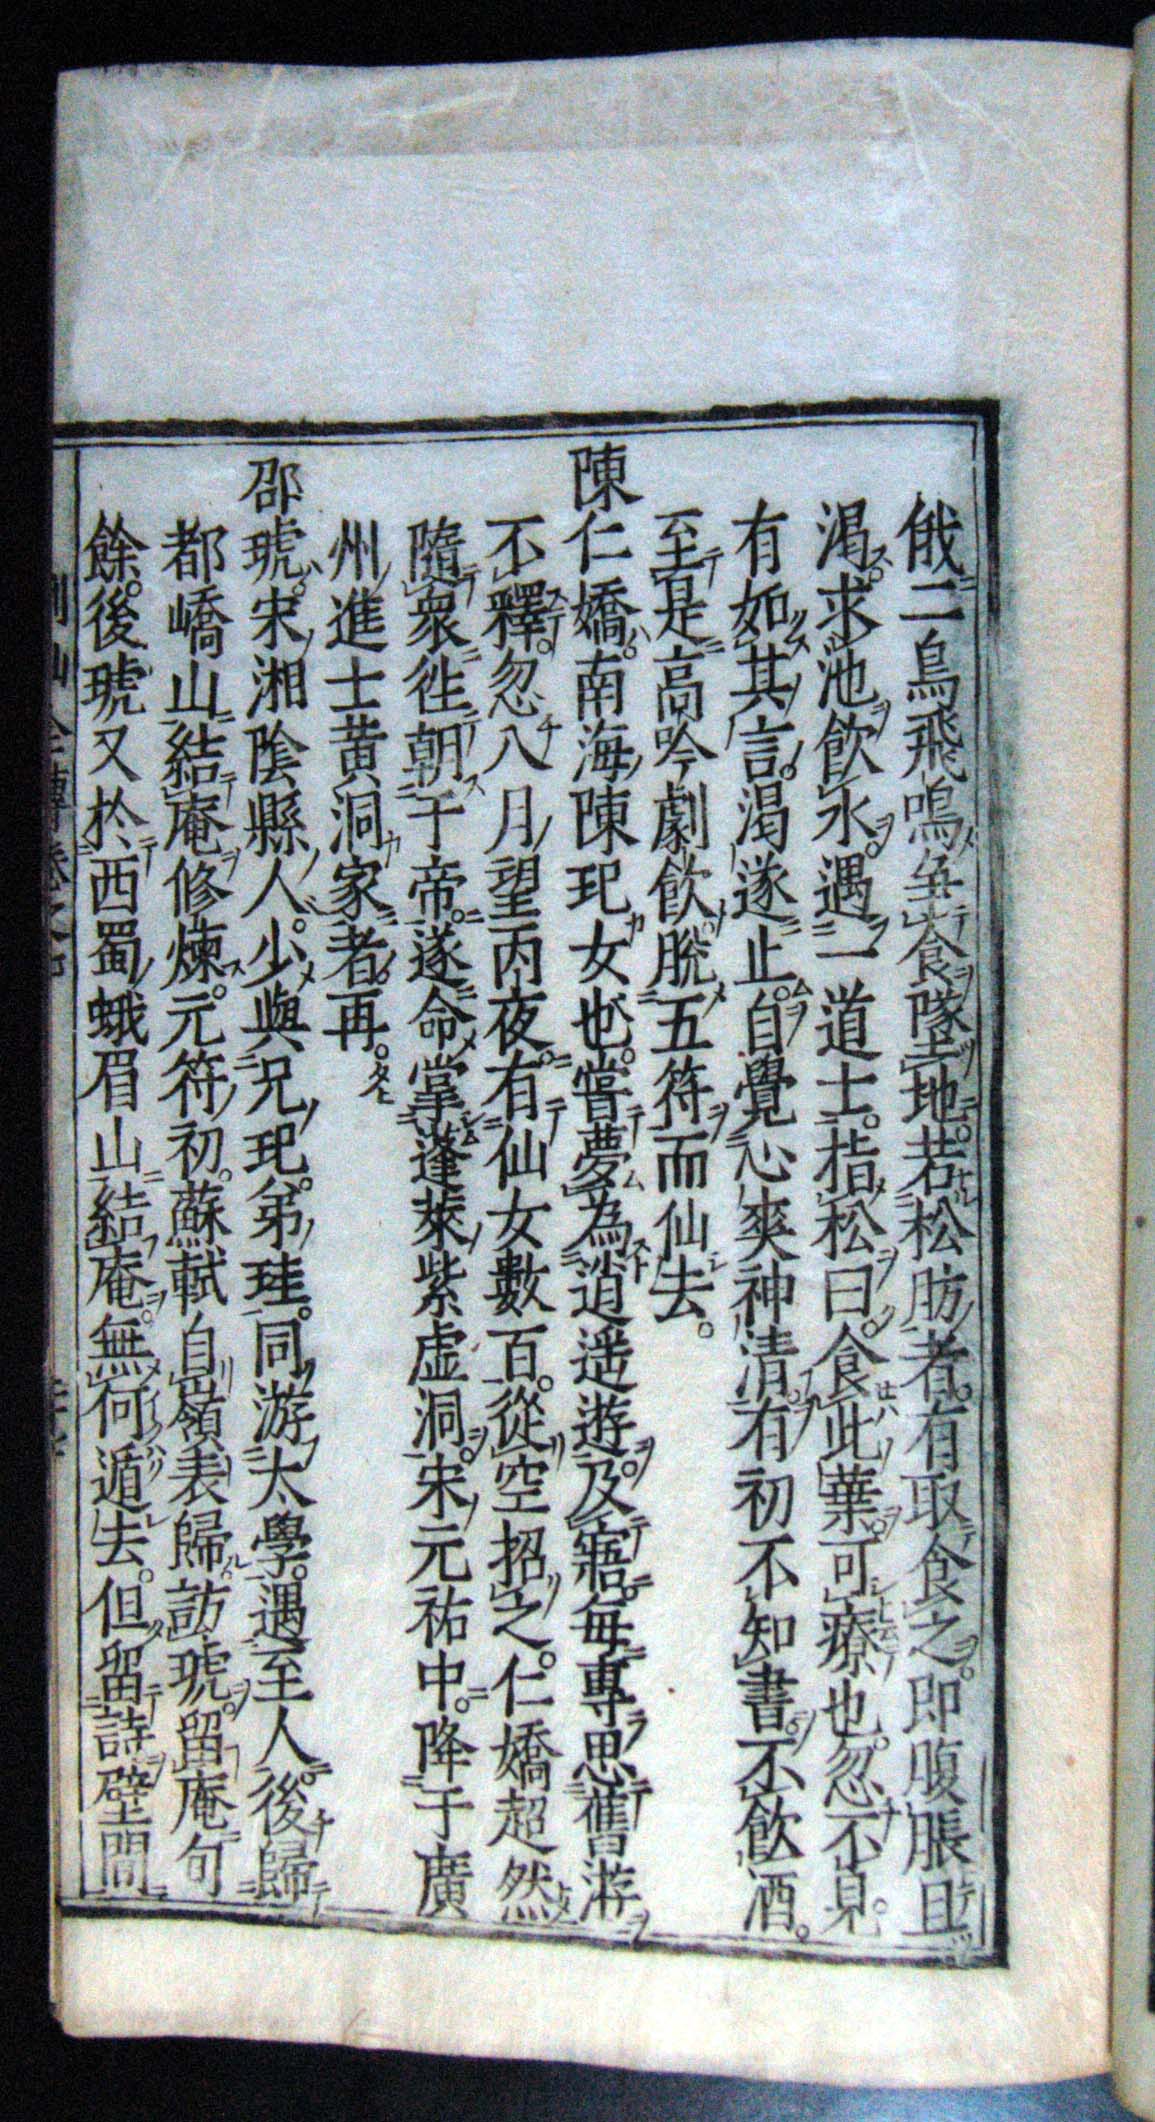 俄二鳥飛鳴争食墜地若松肪者有取食之即腹脹且
渇求池飲水遇一道士指松曰食此葉可療也忽不見
有如其言渇遂止自覺心爽神清有初不知書不飲酒
至是高吟劇飲脱五符而仙去
陳仁嬌南海陳玘女也嘗夢為逍遥遊及寤毎專思舊游
不釋忽八月望丙夜有仙女數百從空招之仁嬌超然
隨衆徃朝于帝遂命掌蓬萊紫虚洞宋元祐中降于廣
州進士黄洞家者再
邵琥宋湘陰縣人少與兄玘弟珪同游太學遇至人後歸
都嶠山結庵修煉元符初蘇軾自嶺表歸訪琥留庵旬
餘後琥又於西蜀蛾眉山結庵無何遁去但留詩壁間